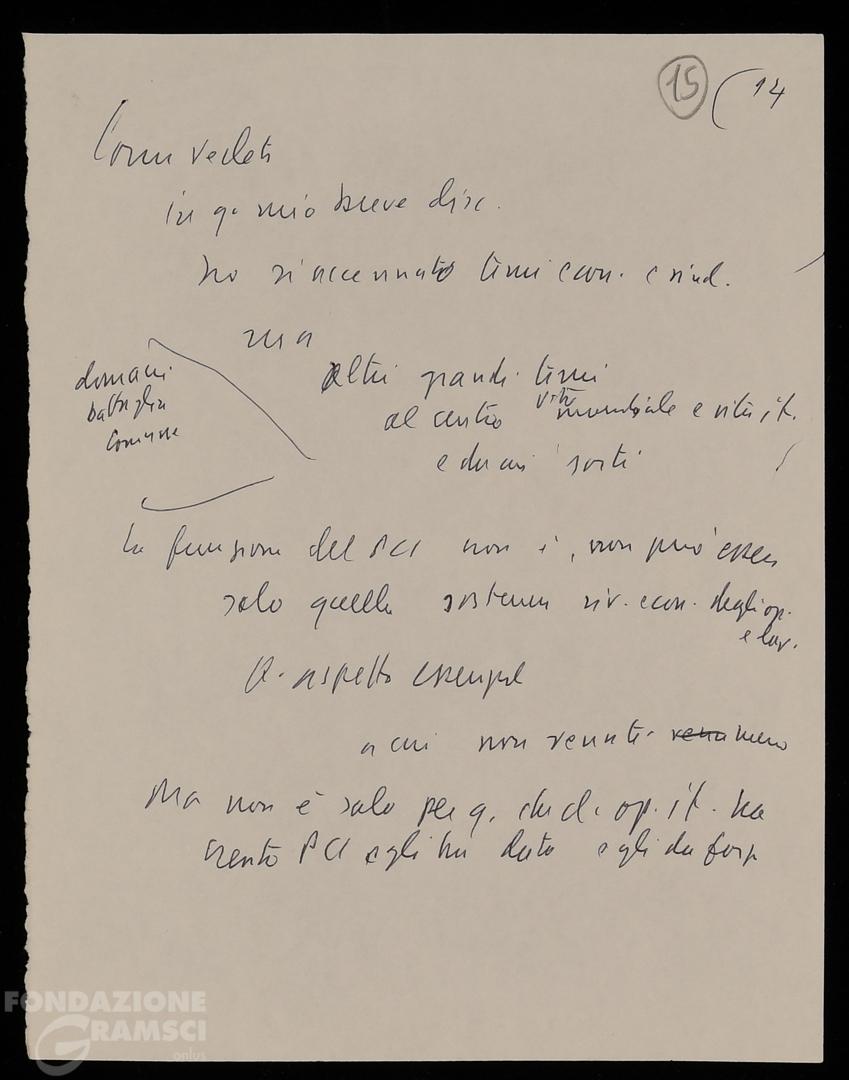 15 (14
Come vedete
in q. mio breve disc.
ho riaccennato temi econ. e sind.
ma
altri grandi temi
al centro vita mondiale e vita it.
e da cui sorti
domani
battaglia
comune
La funzione del PCI non è, non può essere
solo quella sostenere riv. econ. degli op.
e lav.
Q. aspetto
a cui non venuti meno
Ma non è solo per q. che cl. op. it. ha
creato PCI e gli ha dato e gli dà forza
FONDAZIONE
GRAMSCI
onlus